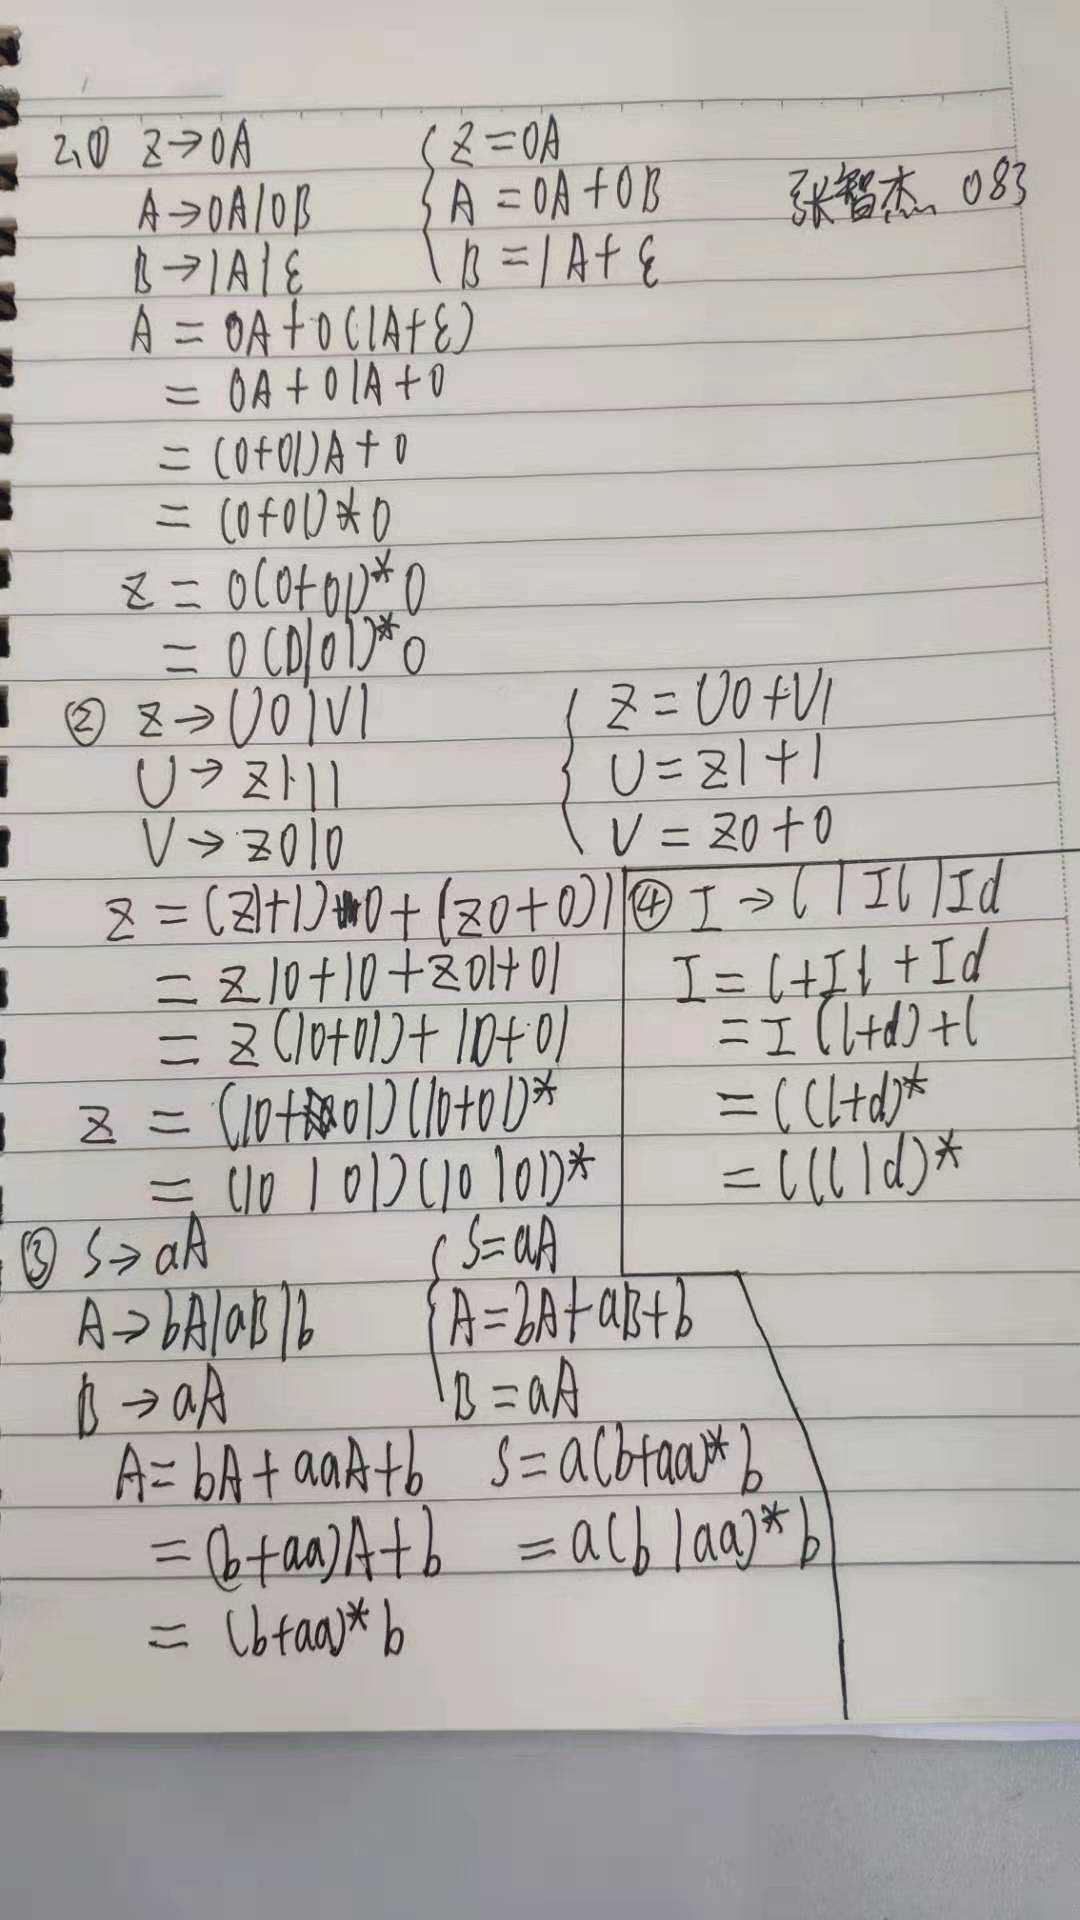 2,① Z→0A
A→0A|0B
B→1A|ε
{ Z=0A
A=0A+0B
B=1A+ε
张智杰 083
A=0A+0(1A+ε)
=0A+01A+0
=(0+01)A+0
=(0+01)*0
Z=0(0+01)*0
=0(0|01)*0
② Z→U0|V1
U→Z1|1
V→Z0|0
{ Z=U0+V1
U=Z1+1
V=Z0+0
Z=(Z1+1)0+(Z0+0)1
=Z10+10+Z01+01
=Z(10+01)+10+01
Z=(10+01)(10+01)*
=(10|01)(10|01)*
④ I→l|Il|Id
I=l+Il+Id
=I(l+d)+l
=l(l+d)*
=l(l|d)*
③ S→aA
A→bA|aB|b
B→aA
{ S=aA
A=bA+aB+b
B=aA
A=bA+aaA+b
=(b+aa)A+b
=(b+aa)*b
S=a(b+aa)*b
=a(b|aa)*b